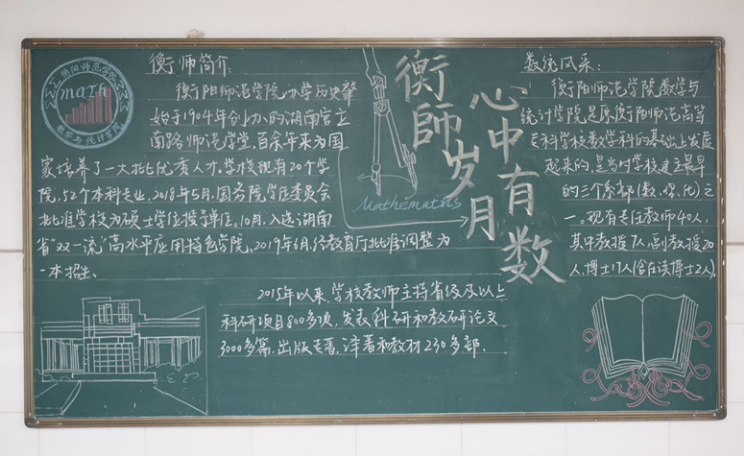 衡阳师范学院
math
数学与统计学院
衡师简介:
衡阳师范学院办学历史肇
始于1904年创办的湖南官立
南路师范学堂,百余年来为国
家培养了一大批优秀人才。学校现有20个学
院,52个本科专业,2018年5月,国务院学位委员会
批准学校为硕士学位授予单位,10月,入选湖南
省“双一流”高水平应用特色学院,2019年6月,经教育厅批准调整为
一本招生。
2015年以来,学校教师主持省级及以上
科研项目800多项,发表科研和教研论文
3000多篇,出版专著,译著和教材230多部.
Mathematics
衡師岁月
心中有数
数统风采:
衡阳师范学院数学与
统计学院是原衡阳师范高等
专科学校数学科的基础上发展
起来的,是当时学校建立最早
的三个系部(数、理、化)之
一。现有专任教师40人,
其中教授7人,副教授20
人,博士17人(含在读博士2人)